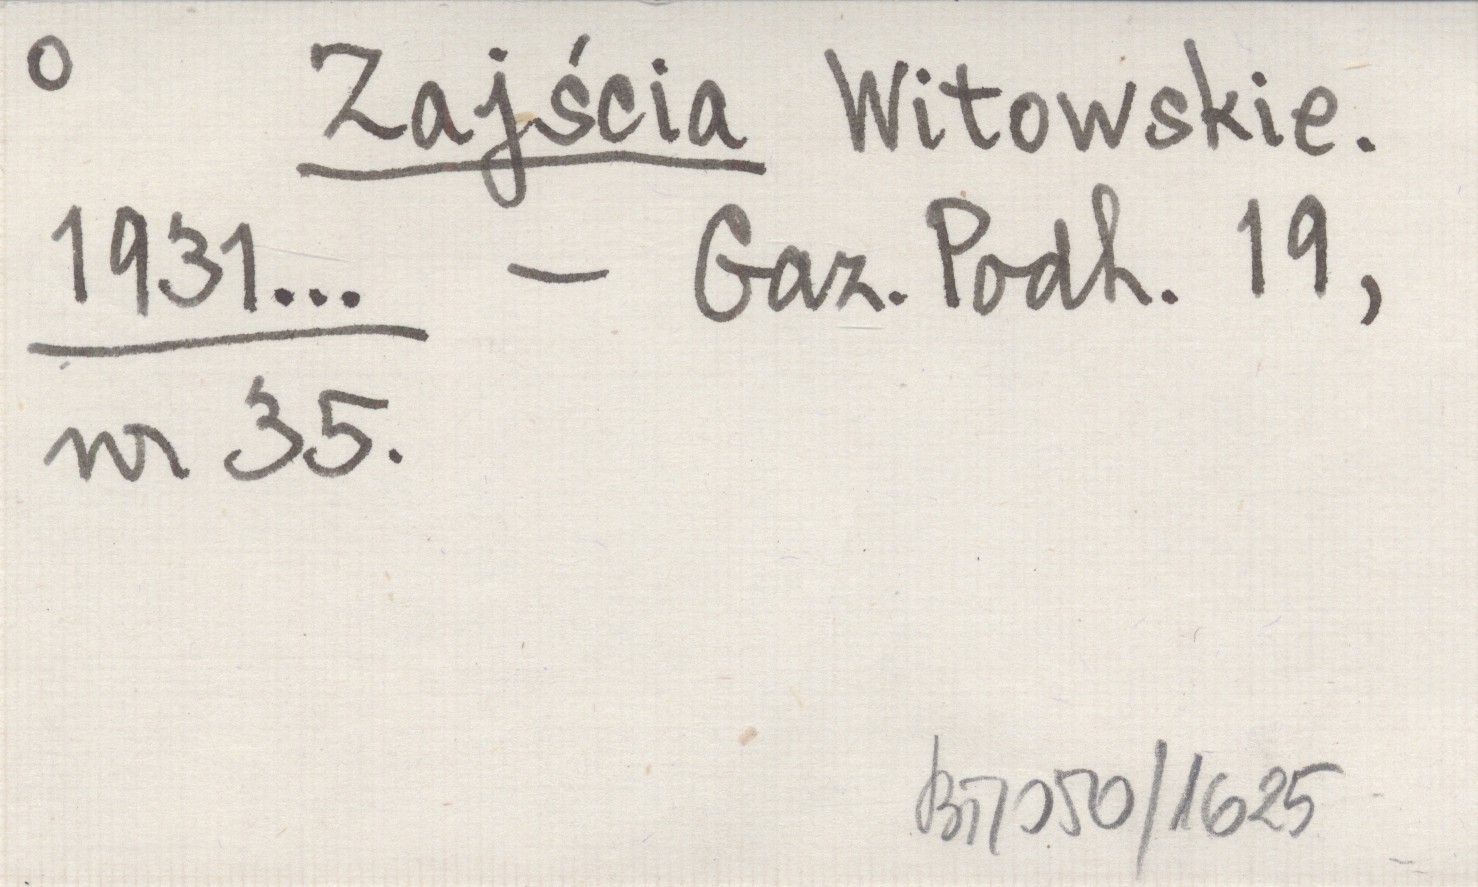 o Zajścia Witowskie.
1931... – Gaz. Podh. 19,
nr 35.
/1625